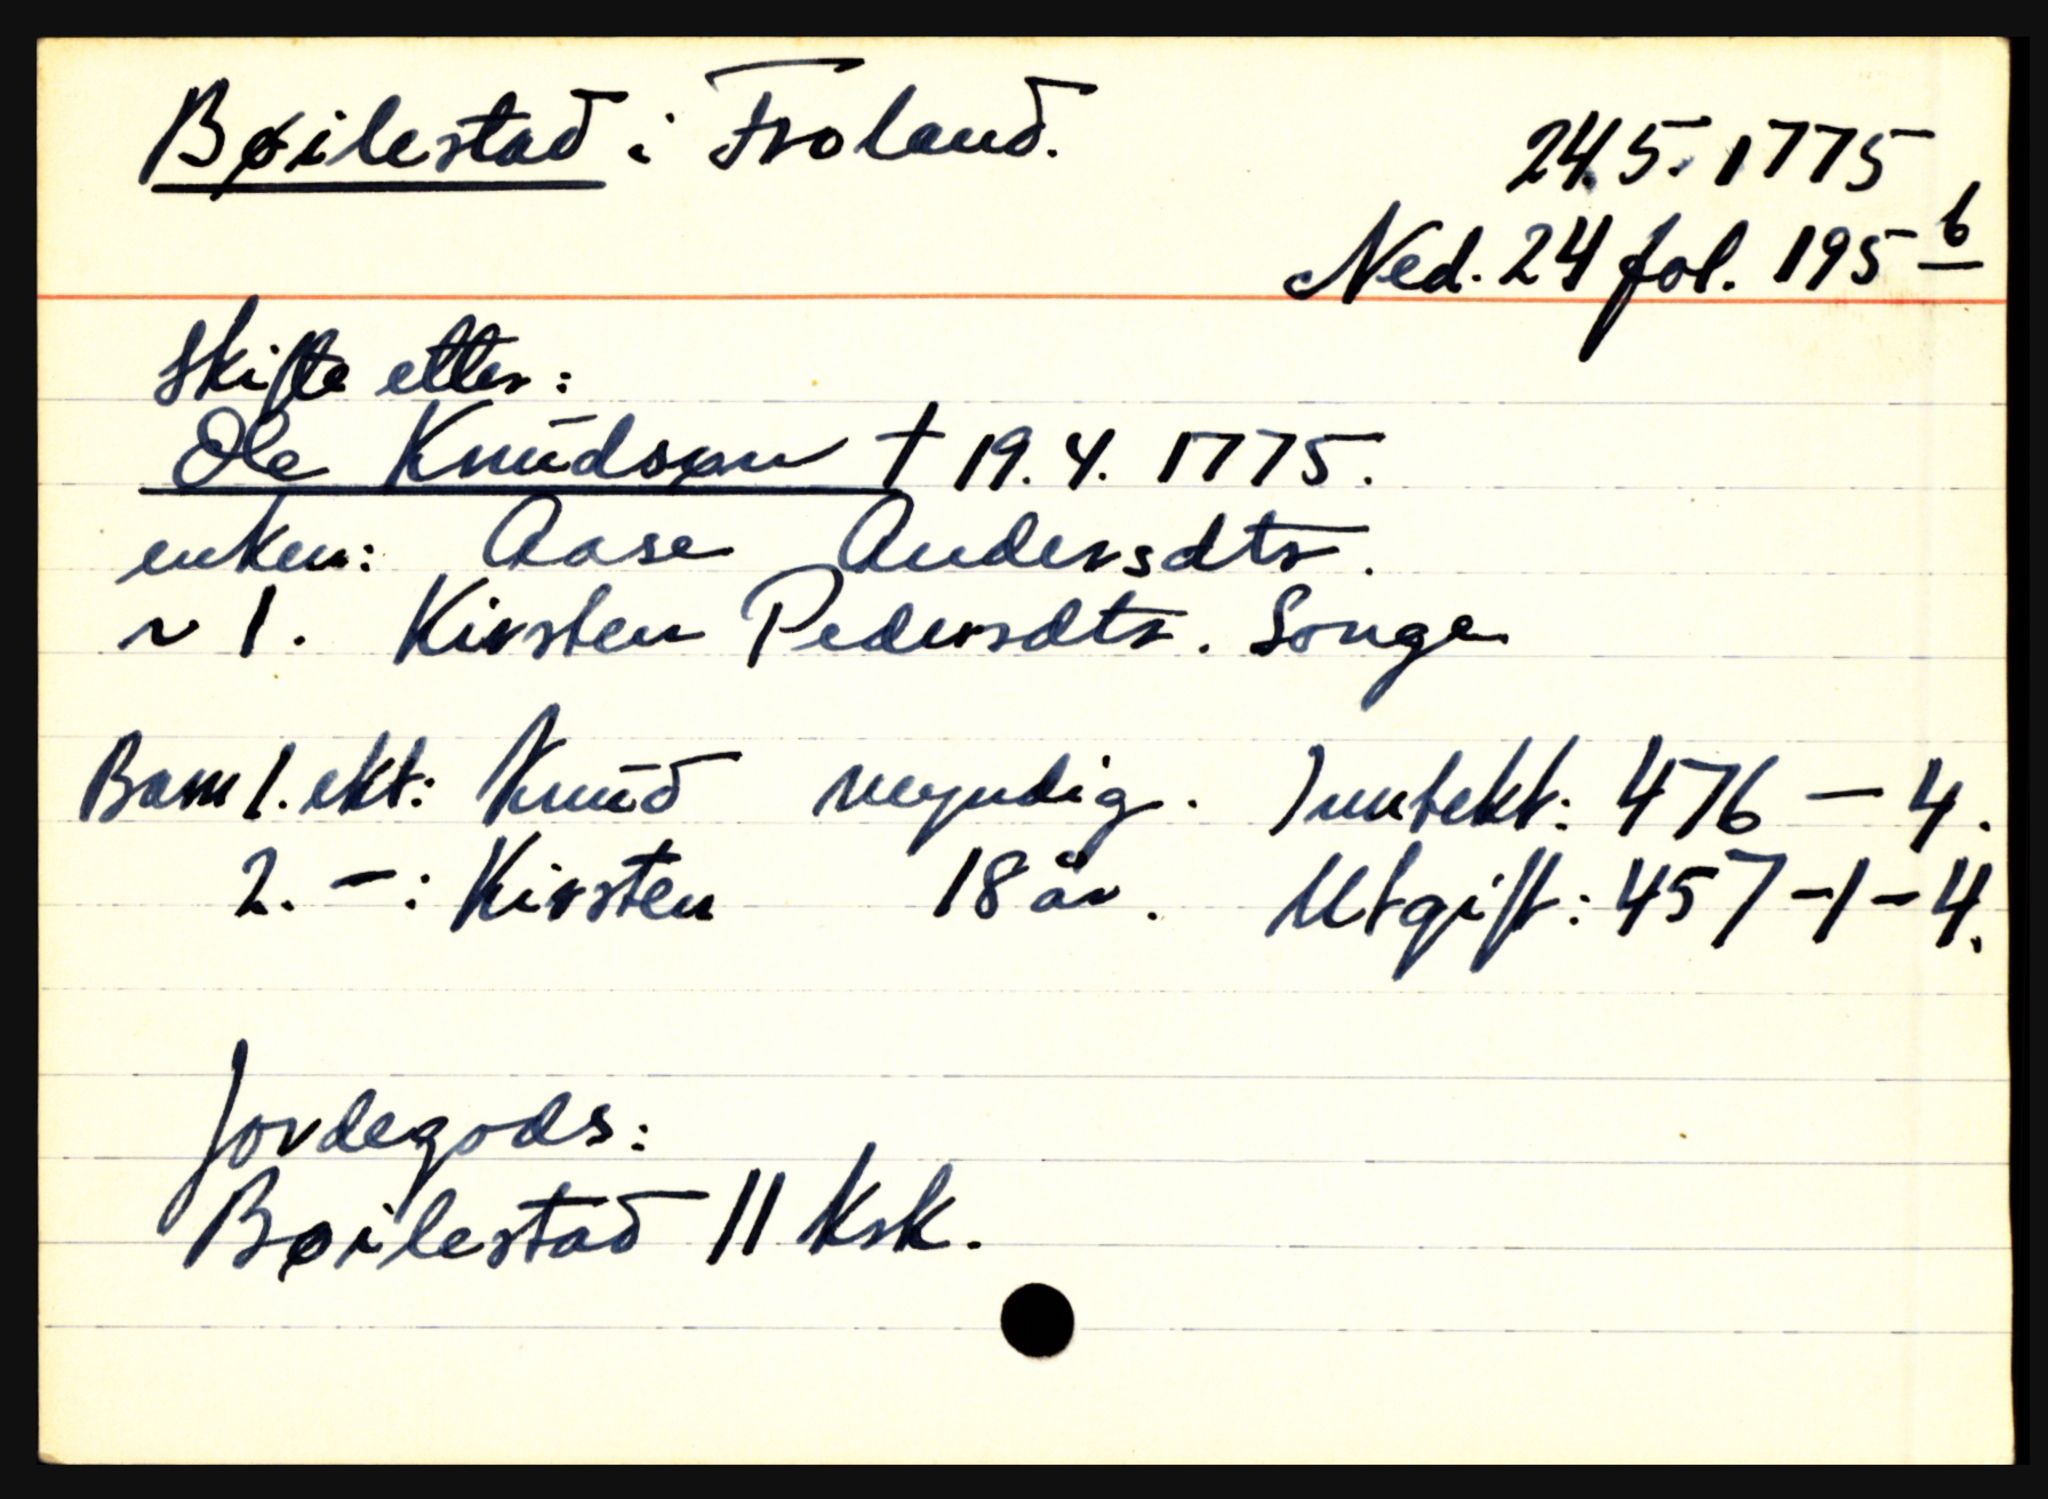 Bøilestad i Froland.
24.5.1775
Ned. 24 fol. 195 b
Skifte etter:
Ole Knudsøn † 19.4.1775.
enken: Aase Andersdtr.
~ 1. Kirsten Pedersdtr. Songe
Barn 1. ekt: Knud myndig. Inntekt: 476 – 4.
2. – : Kirsten 18 år. Utgift: 457 – 1 – 4.
Jordegods:
Bøilestad 11 ksk.